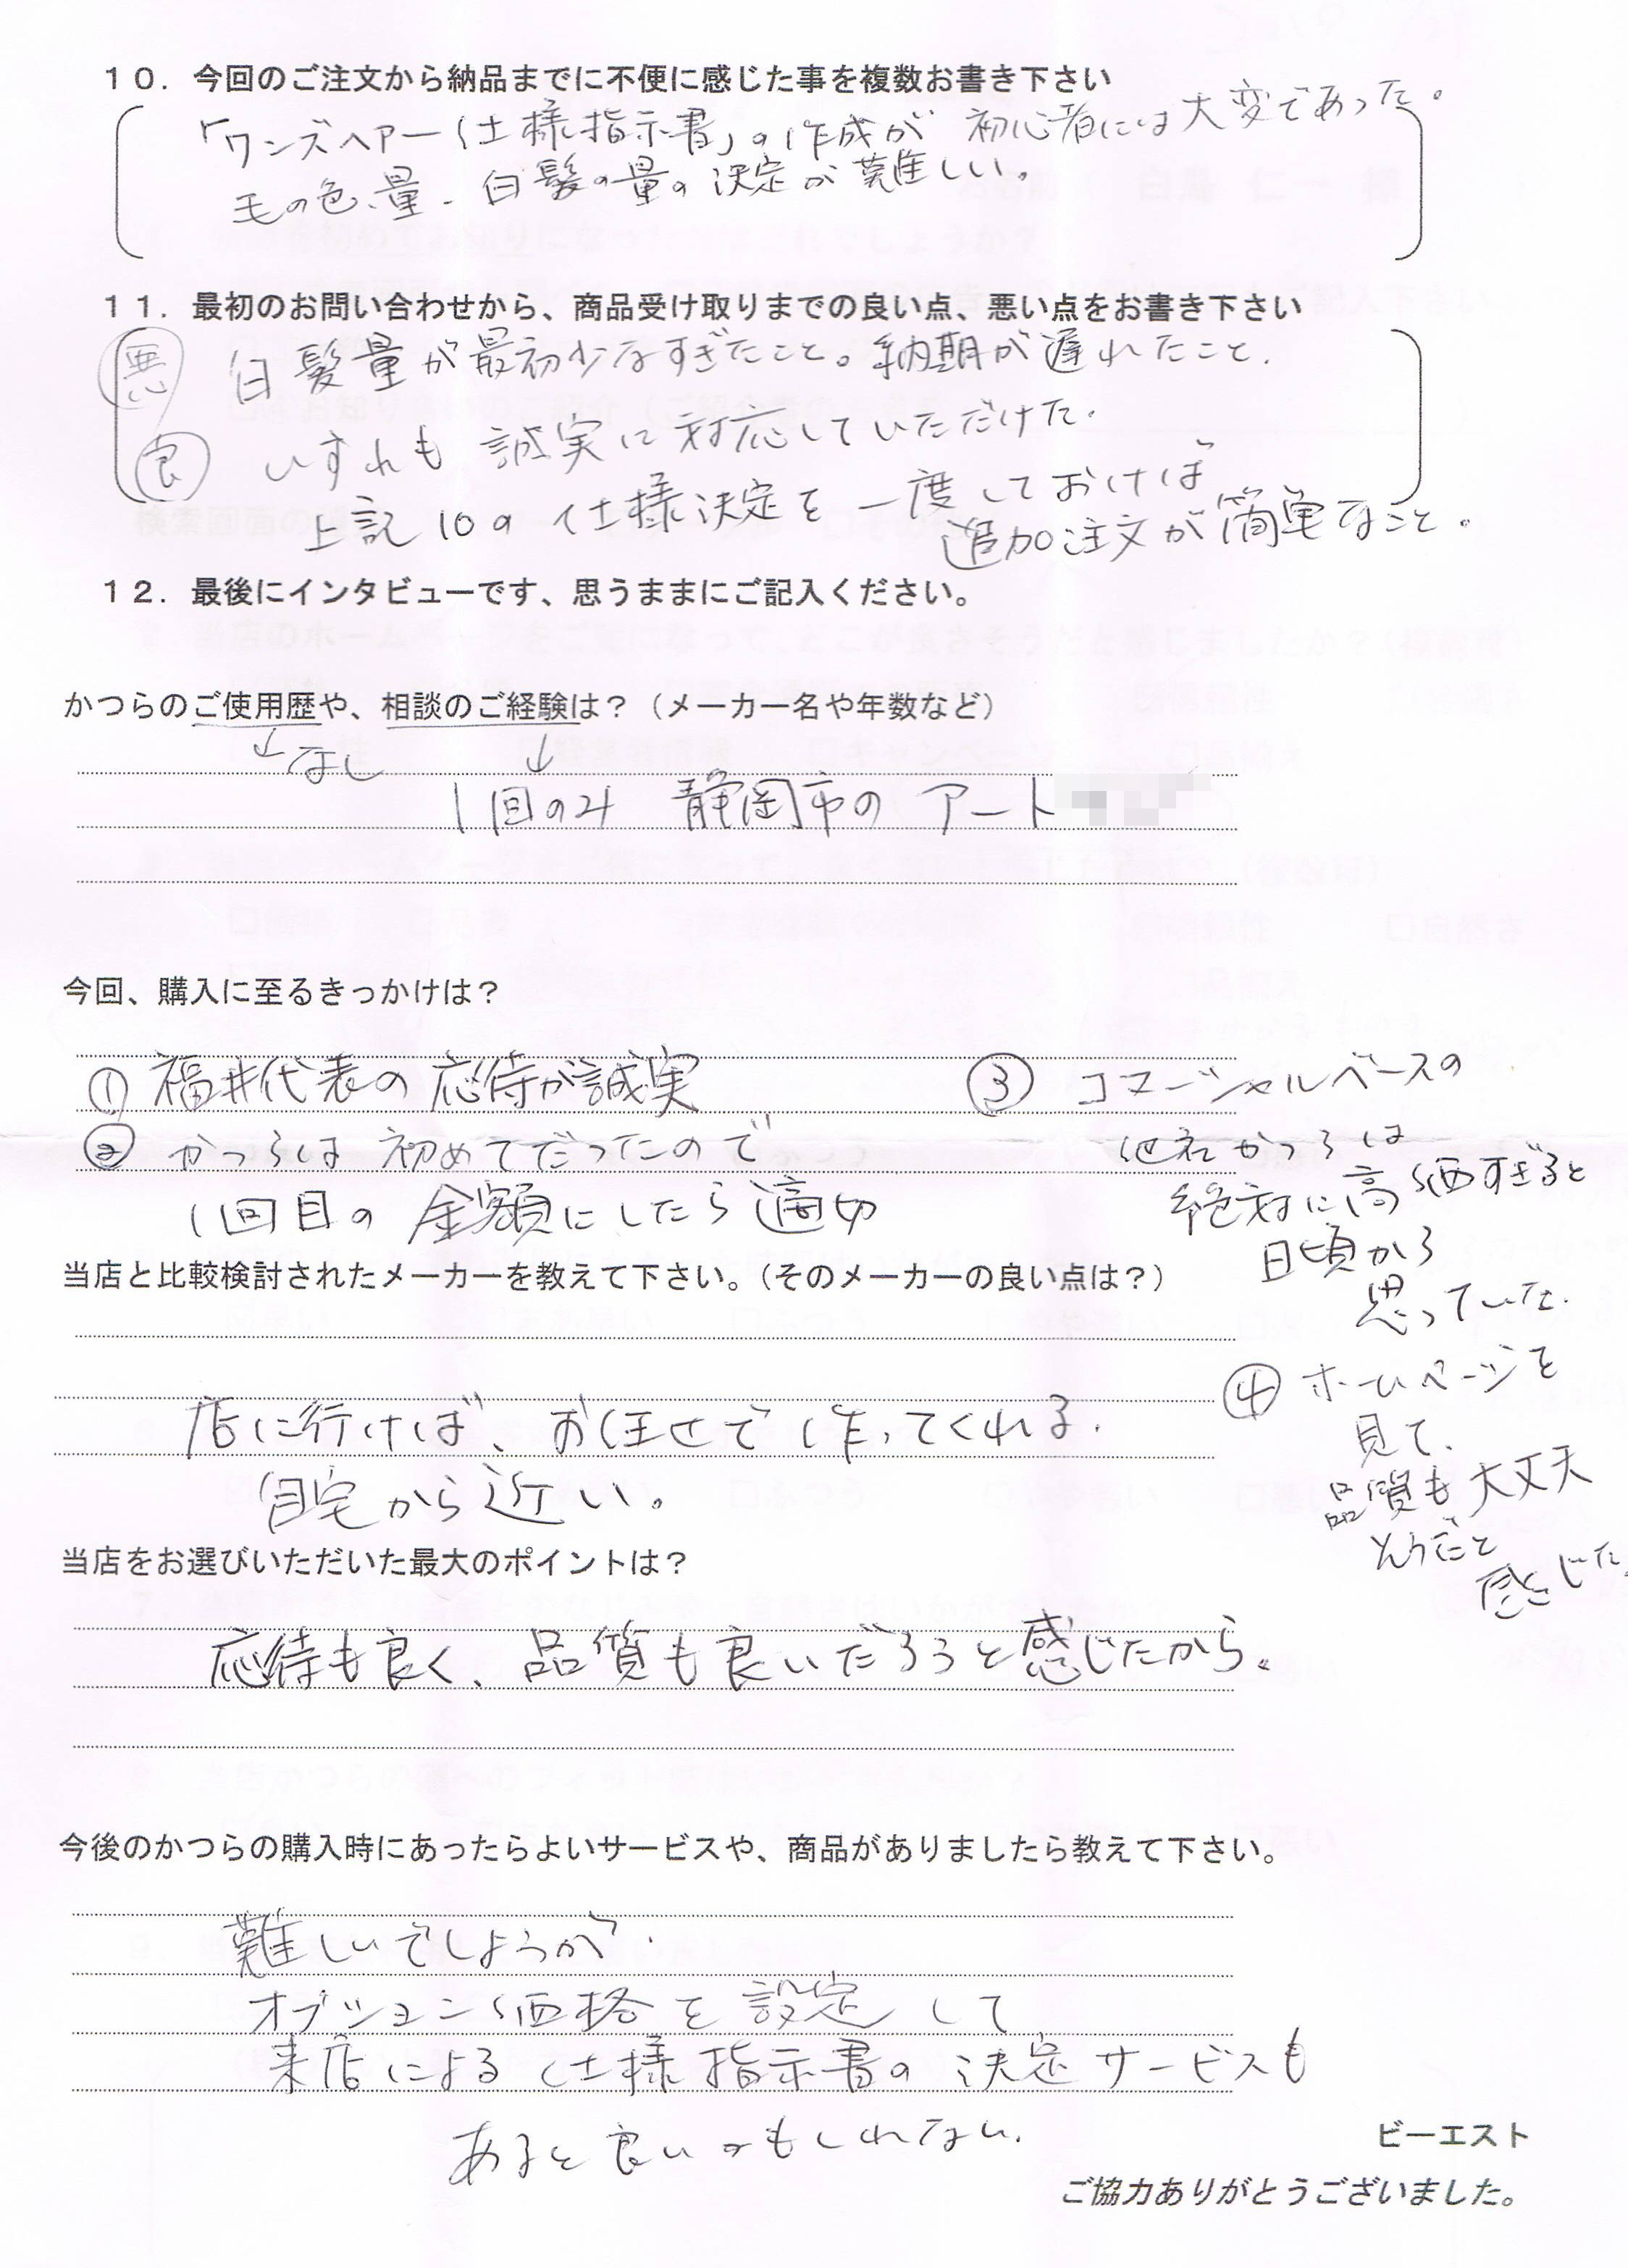 １０．今回のご注文から納品までに不便に感じた事を複数お書き下さい
「ワンズヘアー仕様指示書」の作成が 初心者には大変であった。
毛の色、量、白髪の量の決定が難しい。
１１．最初のお問い合わせから、商品受け取りまでの良い点、悪い点をお書き下さい
悪 白髪量が最初少なすぎたこと。納期が遅れたこと。
良 いずれも誠実に対応していただけた。
上記10の仕様決定を一度しておけば、
追加注文が簡単なこと。
１２．最後にインタビューです、思うままにご記入ください。
かつらのご使用歴や、相談のご経験は？（メーカー名や年数など）
↓なし ↓
1回のみ 静岡市の アート
今回、購入に至るきっかけは？
① 福井代表の応待が誠実
② かつらは初めてだったので
1回目の金額にしたら適切
③ コマーシャルベースの
他社かつらは
絶対に高価すぎると
日頃から
思っていた。
④ ホームページを
見て、
品質も大丈夫
そうだと
感じた。
当店と比較検討されたメーカーを教えて下さい。（そのメーカーの良い点は？）
店に行けば、お任せで作ってくれる。
自宅から近い。
当店をお選びいただいた最大のポイントは？
応待も良く、品質も良いだろうと感じたから。
今後のかつらの購入時にあったらよいサービスや、商品がありましたら教えて下さい。
難しいでしょうが、
オプション価格を設定して
来店による仕様指示書の決定サービスも
あると良いかもしれない。
ビーエスト
ご協力ありがとうございました。